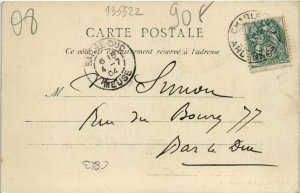 08
135522
90€
CARTE POSTALE
Ce côté est exclusivement réservé à l'adresse
BAR-LE-DUC
6
4 04
MEUSE
M. Simon
Rue du Bourg 77
Bar le Duc